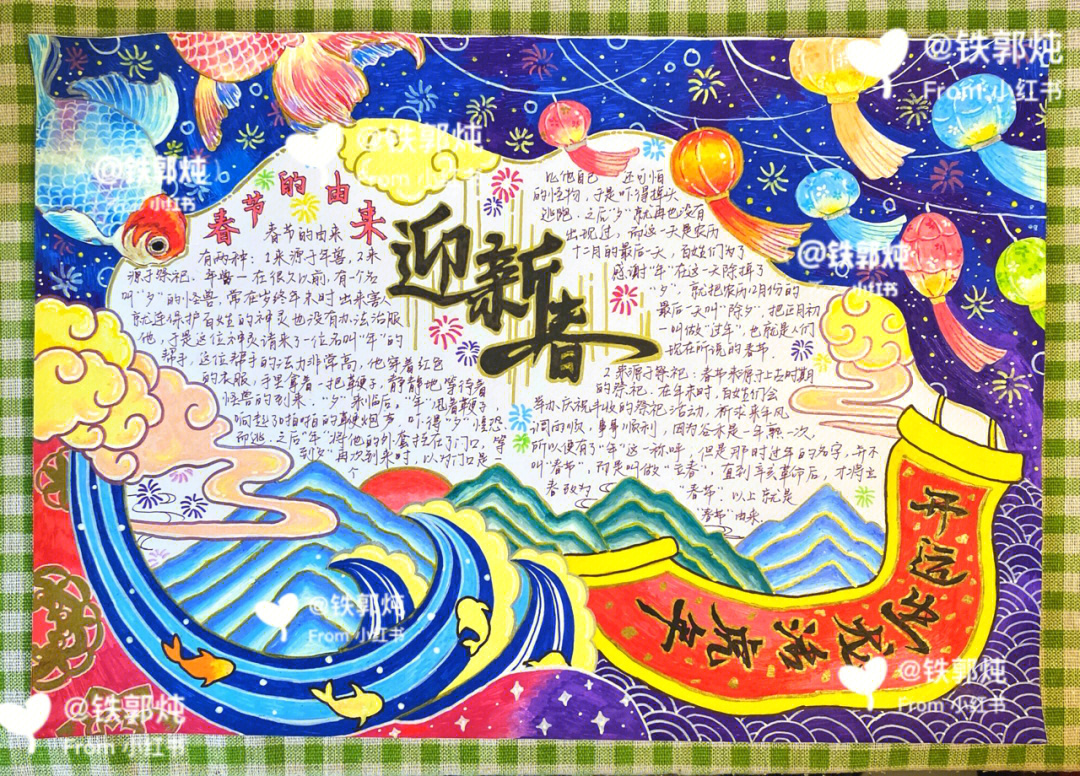 @铁郭炖
From 小红书
@铁郭炖
From 小红书
@铁郭炖
小红书
@铁郭炖
小红书
春节的由来
迎新春
春节的由来
有两种：1来源于年兽，2来
源于祭祀．年兽一在很久以前，有一个名
叫"夕"的怪兽，常在岁终年末时出来害人
就连保护百姓的神灵也没有办法治服
他，于是这位神灵请来了一位名叫"年"的
帮手，这位帮手的法力非常高，他穿着红色
的衣服，手里拿着一把鞭子，静静地等待着
怪兽的到来．"夕"来临后，"年"甩着鞭子，
响起了啪啪的鞭炮声 吓得"夕"慌恐
而逃，之后"年"将他的外套挂在了门口，等
到"夕"再次到来时，以为门口是
个
比他自己 还可怕
的怪物，于是吓得掉头
逃跑，之后"夕"就再也没有
出现过，而这一天是农历
十二月的最后一天，百姓们为了
感谢"年"在这一天除掉了
"夕"，就把农历12月份的
最后一天叫"除夕"．把正月初
一叫做"过年"，也就是人们
现在所说的春节．
2来源于祭祀：春节来源于上古时期
的祭祀．在年末时，百姓们会
举办庆祝丰收的祭祀活动，祈求来年风
调雨顺，事事顺利，因为谷禾是一年熟一次，
所以便有了"年"这一称呼，但是那时过年的名字，并不
叫"春节"，而是叫做"元春"，直到辛亥革命后，才将立
春改为 "春节"．以上就是
"春节"由来．
生活虎年
@铁郭炖
From 小红书
@铁郭炖
From 小红书
@铁郭炖
From 小红书